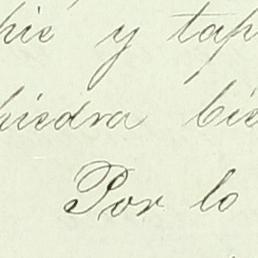 pie y tap
piedra bie
Por lo